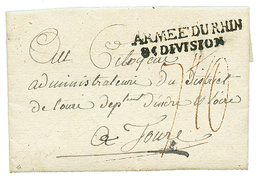 ARMÉE DU RHIN
8e DIVISION
Aux Citoyens
administrateurs du District
de Tours dept. d'indre et Loire
a Tours